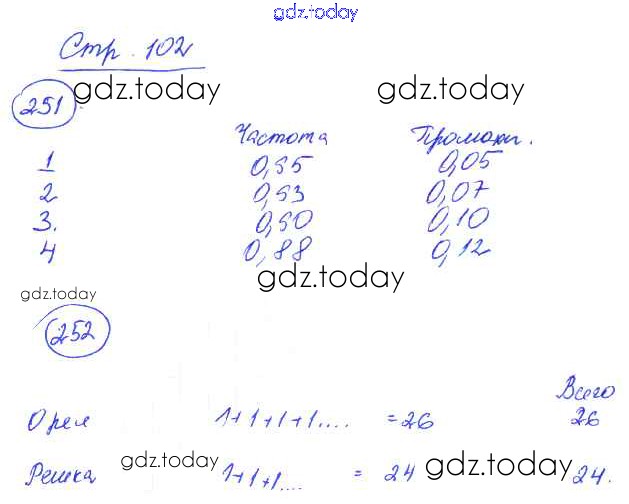 gdz.today
Стр. 102
251
gdz.today gdz.today
Частота Промахи.
1 0,95 0,05
2 0,93 0,07
3. 0,90 0,10
4 0,88 0,12
gdz.today
gdz.today
252
Всего
Орел 1+1+1+1.... =26 26
Решка gdz.today 1+1+1.... = 24 gdz.today 24.